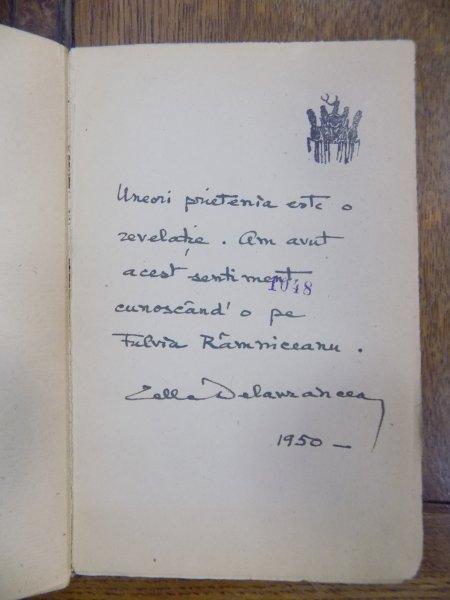 Uneori prietenia este o
revelație. Am avut
acest sentiment,
1048
cunoscând'o pe
Fulvia Râmniceanu.
Cella Delavrancea
1950 —